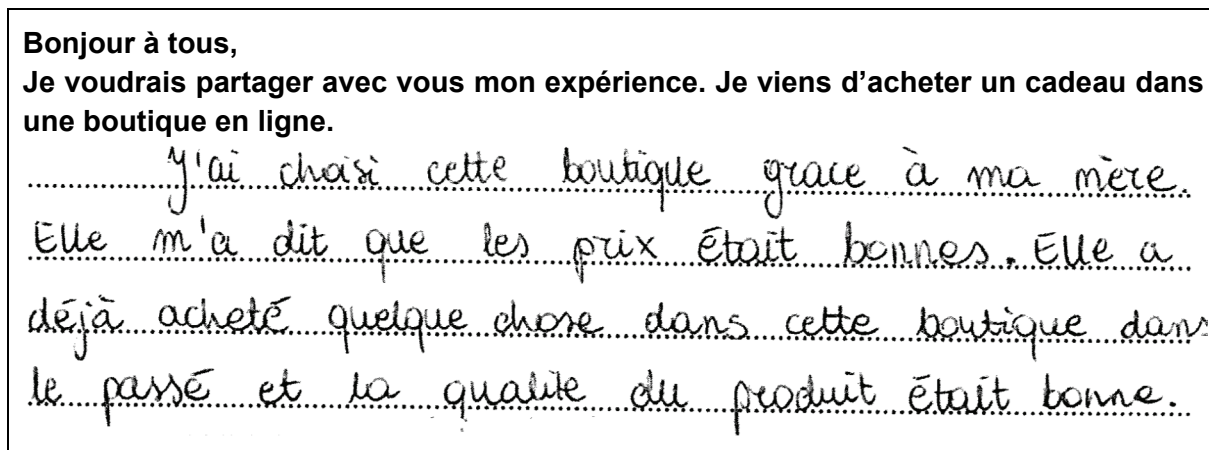 Bonjour à tous,
Je voudrais partager avec vous mon expérience. Je viens d'acheter un cadeau dans
une boutique en ligne.
J'ai choisi cette boutique grace à ma mère.
Elle m'a dit que les prix était bonnes. Elle a
déjà acheté quelque chose dans cette boutique dans
le passé et la qualite du produit était bonne.